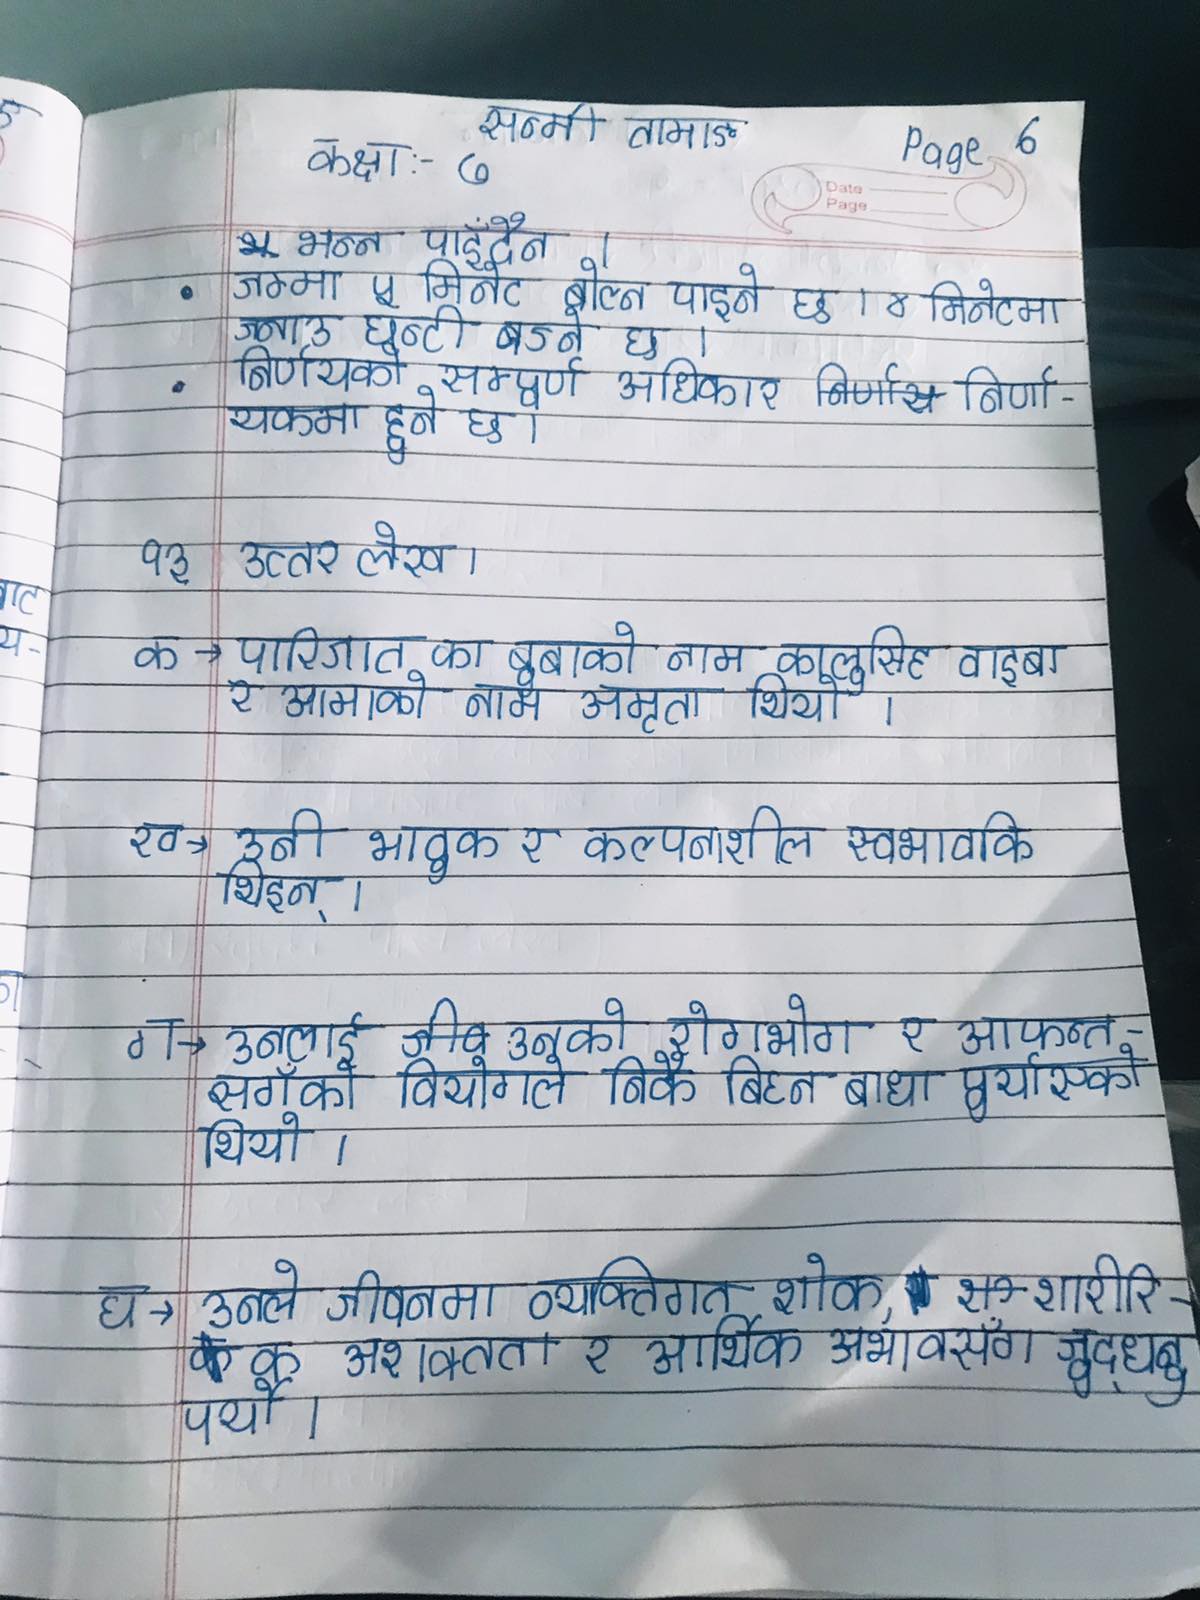 सन्मी तामाङ
Page 6
कक्षा:- ७
Date
Page
भन्न पाइँदैन ।
• जम्मा ५ मिनेट बोल्न पाइने छ । ४ मिनेटमा
जनाउ घन्टी बज्ने छ ।
• निर्णयको सम्पूर्ण अधिकार निर्णा-
यकमा हुने छ ।
१३ उत्तर लेख ।
क → पारिजात का बुबाको नाम कालुसिंह वाइबा
र आमाको नाम अमृता थियो ।
ख → उनी भावुक र कल्पनाशील स्वभावकि
थिइन् ।
ग → उनलाई जीव उनको रोगभोग र आफन्त-
सगँको वियोगले निकै बिघ्न बाधा पुर्याएको
थियो ।
घ → उनले जीवनमा व्यक्तिगत शोक, शारीरि-
क अशक्तता र आर्थिक अभावसँग जुद्धनु
पर्यो ।